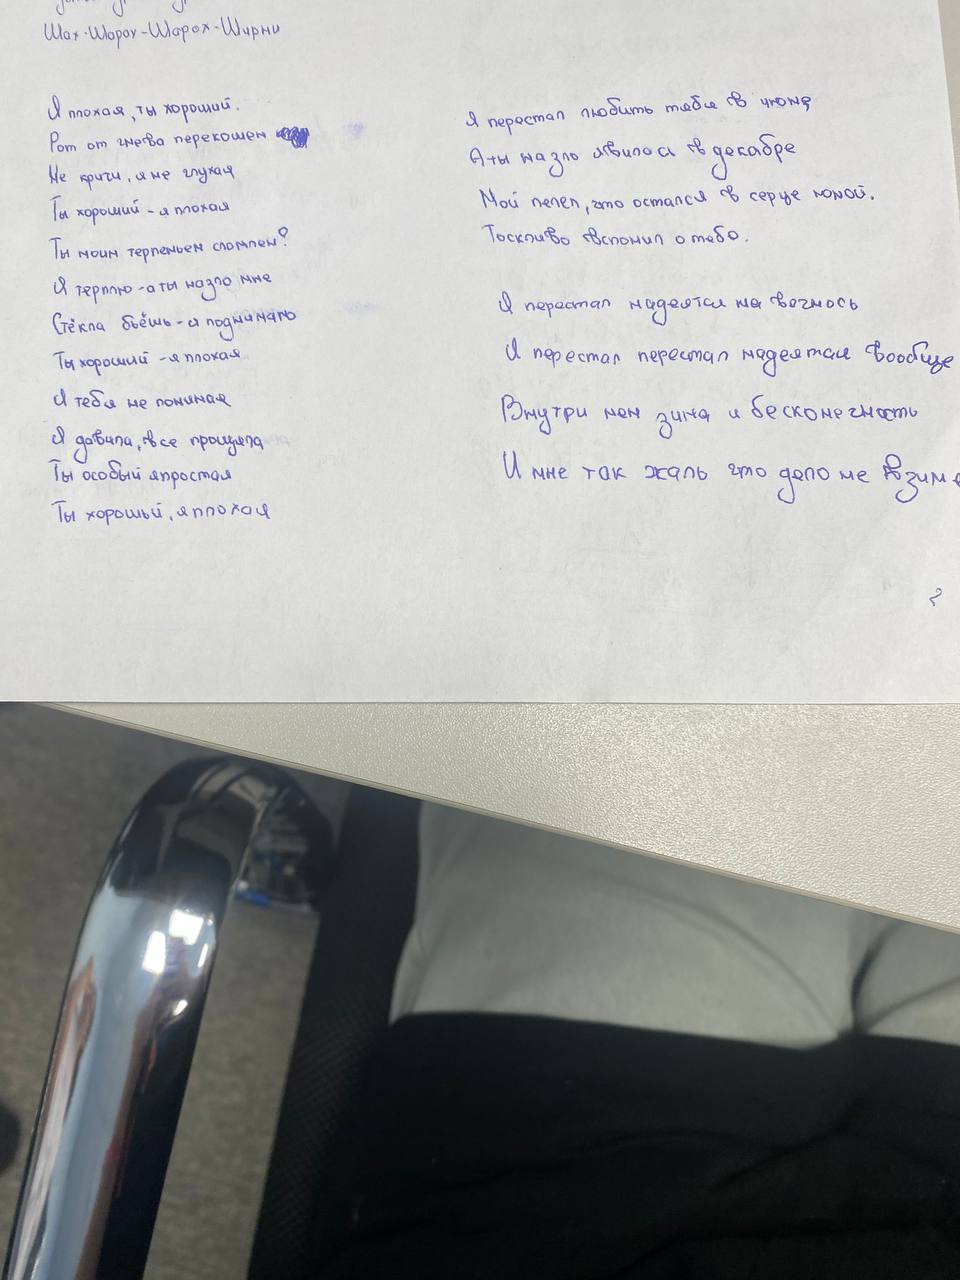 Шах-Шорох-Шорох-Ширни
Я плохая, ты хороший.
Рот от гнева перекошен
Не кричи, я не глухая
Ты хороший - я плохая
Ты моим терпеньем сломлен?
Я терплю - а ты назло мне
Стёкла бьёшь - я поднимаю
Ты хороший - я плохая
Я тебя не понимая
Я давила, все прощяла
Ты особый япростая
Ты хорошый, я плохая
Я перестал любить тебя в июне
А ты назло явилося в декабре
Мой пепел, что остался в серце
Тоскливо вспомнил о тебо.
Я перестал надеятся на вечнось
Я перестал перестал надеятся вообще
Внутри мен зима и бесконечность
И мне так жаль что дело не взим